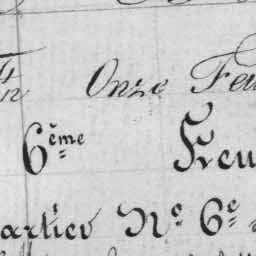 Onze Feu
6ème Freu
artier No. 6e